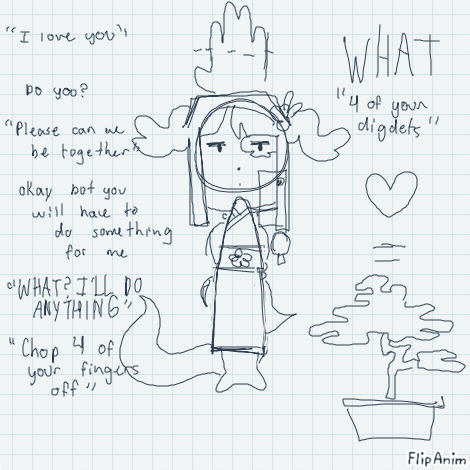 "I love you"
Do yoo?
"Please can we
be together"
okay but you
will have to
do something
for me
"WHAT? I'LL DO
ANYTHING"
"Chop 4 of
your fingers
off"
WHAT
"4 of your
digdets"
FlipAnim